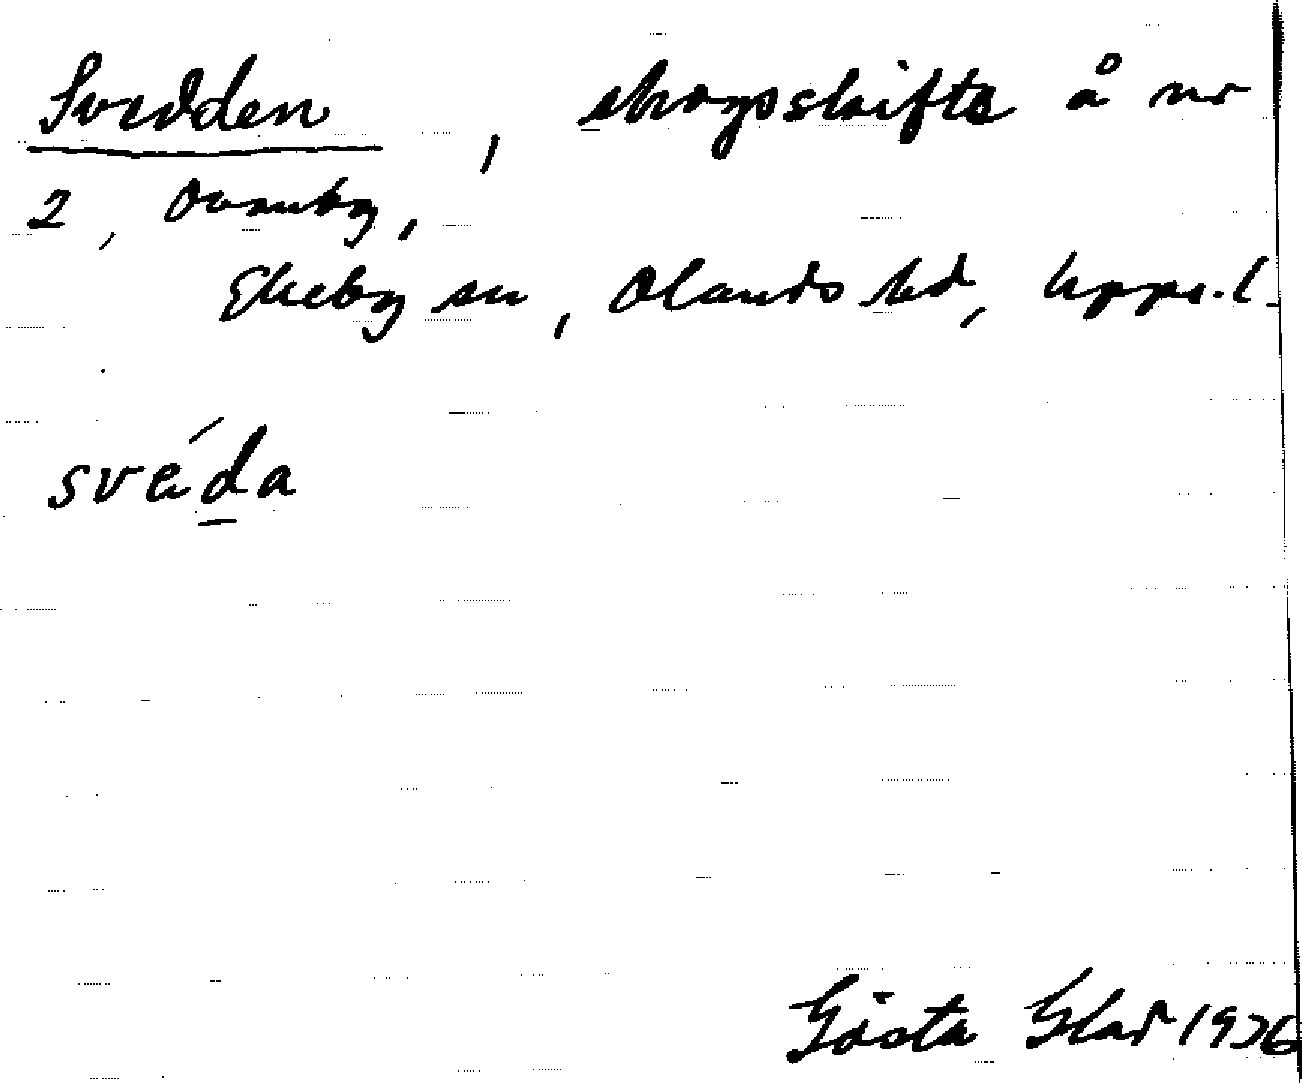 Svedden, skogsskifte å nr
2,
Ekeby sn, Olands hd, Upps. l.
svéda
Gösta